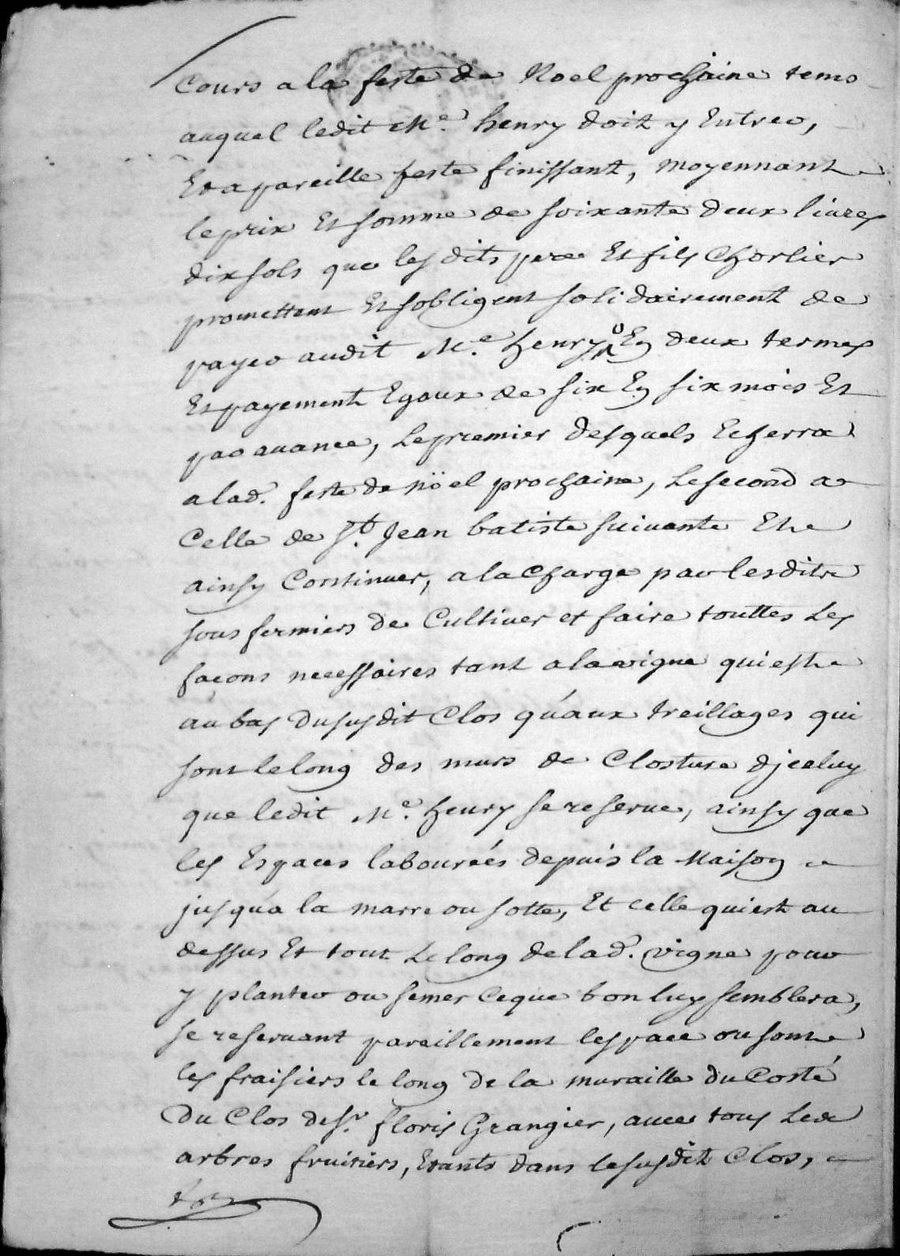 cours a la feste de Noel prochaine tems
auquel ledit Me. henry doit y Entrer,
Et a pareille feste finissant, moyennant
le prix Et somme de soixante deux livres
dix sols que les dits pere Et fils Chorlier
promettent Et sobligent solidairement de
payer audit Me. henry En deux termes
Et payement Egaux de six En six mois Et
par avance, Le premier desquels Echerra
a lad. feste de nöel prochaine, Le second a
Celle de St. Jean batiste suivante Et
ainsy Continuer, a la Charge par lesdits
sous fermiers de Cultiver et faire touttes Les
façons necessaires tant a la vigne qui est
au bas du susdit Clos qu'aux treillages qui
sont le long des murs de Closture d'jceluy
que ledit Me. henry se reserve, ainsy que
les Espaces labourées depuis la Maison
jusqua la marre ou sotte, Et celle qui est au
dessus Et tout Le long de lad. vigne pour
y planter ou semer ce que bon luy semblera,
se reservant pareillement lespace ou sont
les fraisiers le long de la muraille du Costé
du Clos de Sr. floris Grangier, avec tous Les
arbres fruitiers, Etants dans le susdit Clos,